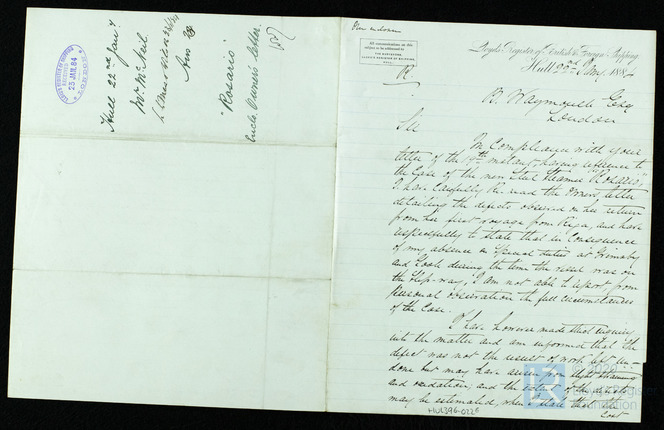 LLOYD'S REGISTER OF SHIPPING
RECEIVED
23 JAN. 84
LONDON
Hull 22nd Jany
Mr McNeil
Ans
"Rosario"
Encls. Owners letter.
All communications on this
subject to be addressed to
THE SURVEYORS,
LLOYD'S REGISTER OF SHIPPING,
HULL.
R.
Lloyd's Register of British & Foreign Shipping
Hull 22nd Jany 1884
B. Waymouth Esqre
London
Sir
In Compliance with your
letter of the 19th instant, having reference to
the Case of the new Steel Steamer "Rosario"
I have Carefully Re-read the Owners letter
detailing the defects observed on her return
from her first voyage from Riga, and have
respectfully to state that in Consequence
of my absence on Special duties at Grimsby
and Goole during the time the vessel was on
the Slip-way, I am not able to report from
personal observation the full circumstances
of the Case.
I have however made strict enquiry
into the matter and am informed that the
defect was not the result of work left un-
done but may have arisen from slight straining
and oxidation; and the extent of the defects
may be estimated, when I state that the
Cost
HUL396-0226
2020
Lloyd's Register
Foundation